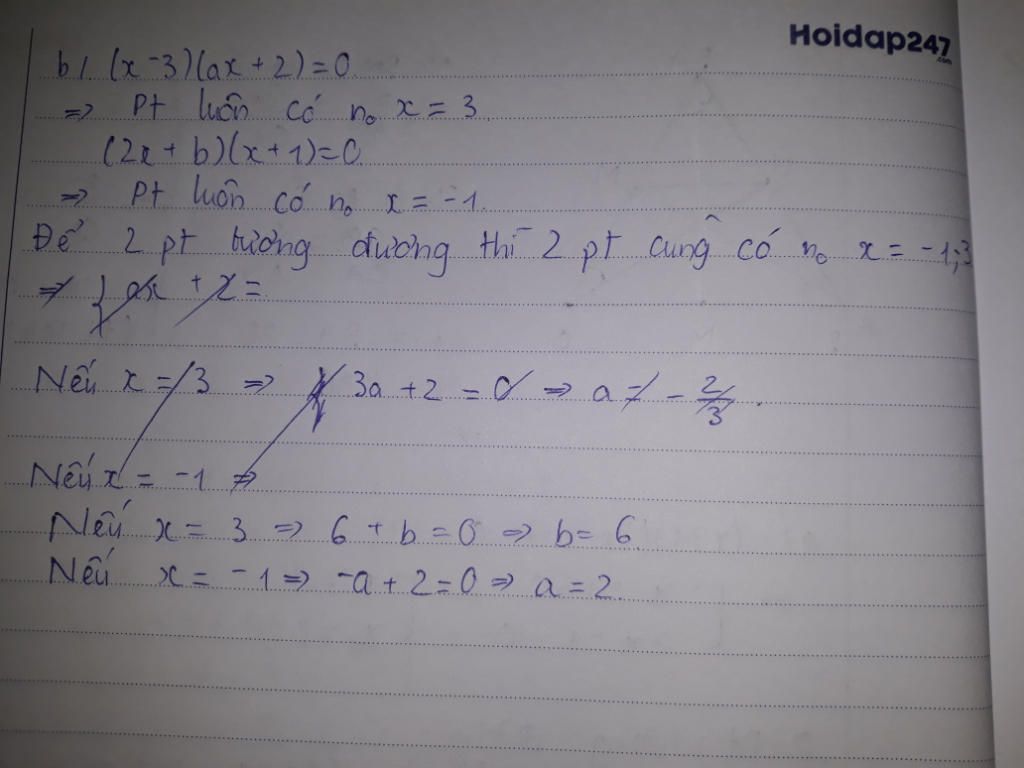 Hoidap247
.com
b/. (x-3)(ax+2)=0
=> Pt luôn có no x = 3.
(2x+b)(x+1)=0
=> Pt luôn có no x = -1.
Để 2 pt tương đương thì 2 pt cùng có no x = -1;3
=> { ax + 2 =
Nếu x = 3 => 3a + 2 = 0 => a = - 2/3.
Nếu x = -1 =>
Nếu x = 3 => 6 + b = 0 => b = 6
Nếu x = -1 => -a + 2 = 0 => a = 2.